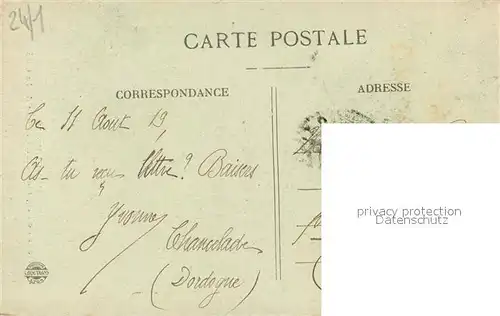 24/1
CARTE POSTALE
CORRESPONDANCE
ADRESSE
Ce 11 Aout 19
As-tu reçu lettre? Baisers
Yvonne
Chancelade
(Dordogne)
privacy protection
Datenschutz